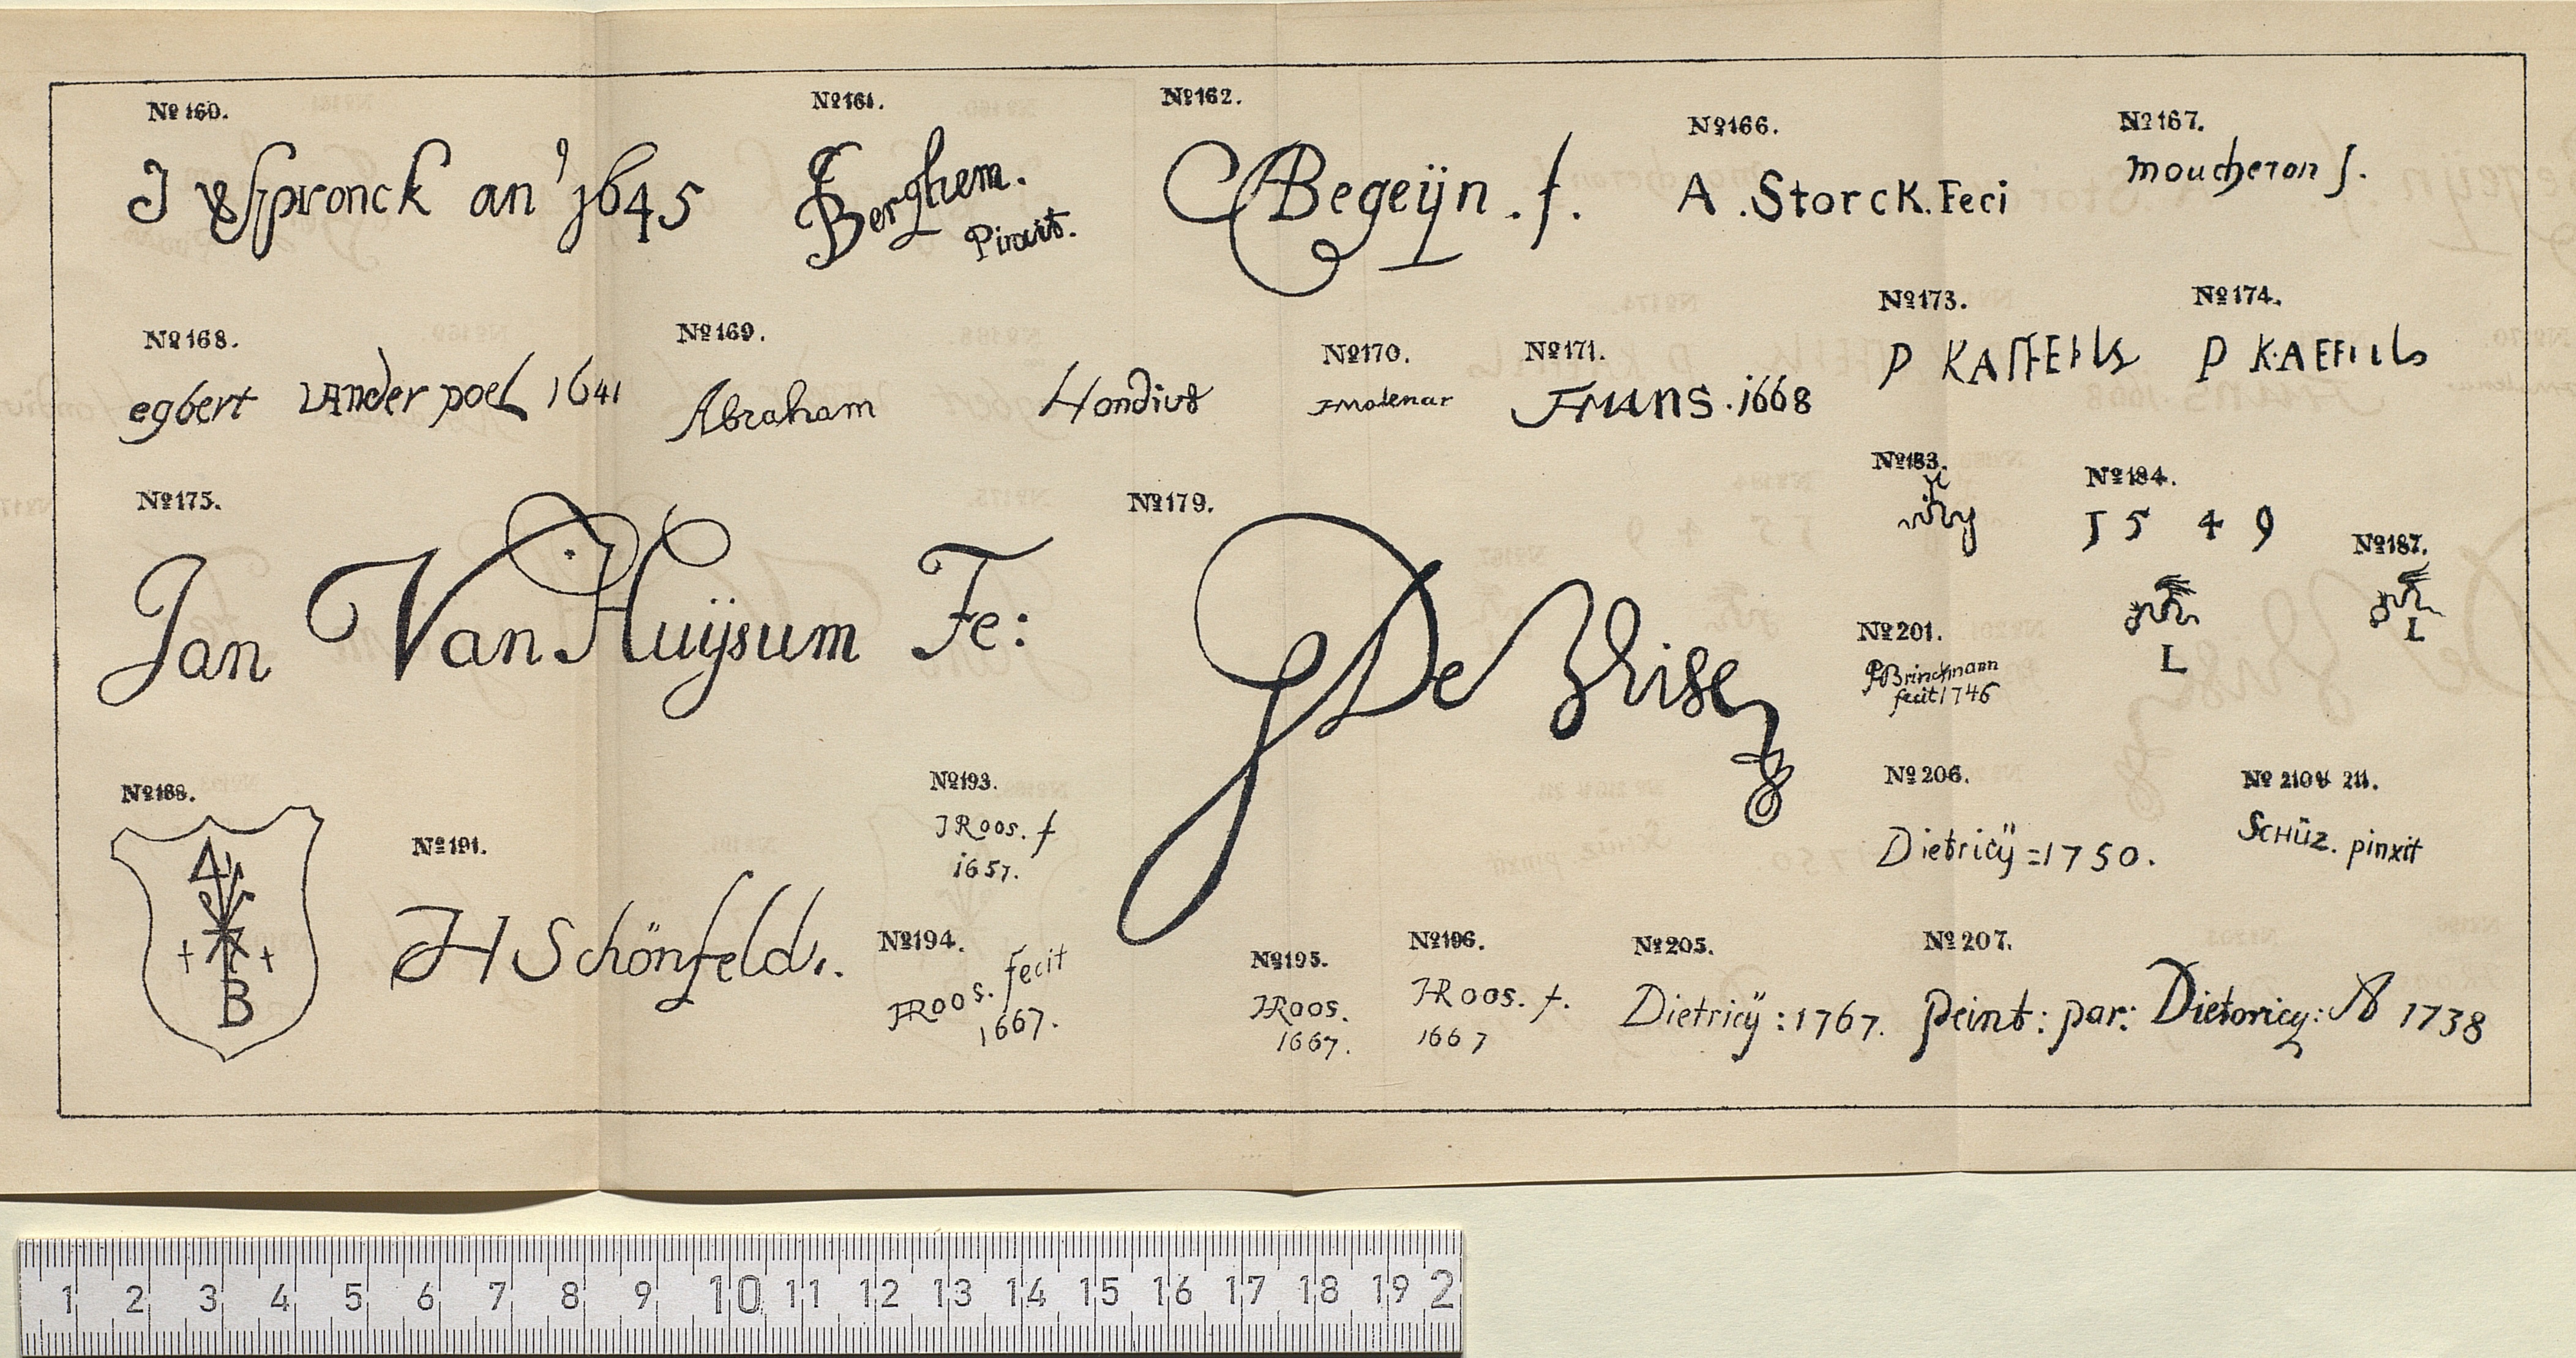 Nº 160.
J VSpronck an' 1645
Nº 161.
Berghem.
Pinxit.
Nº 162.
CABegeijn . f.
Nº 166.
A . Storck. Feci
Nº 167.
moucheron f.
Nº 168.
egbert vander poel 1641
Nº 169.
Abraham Hondius
Nº 170.
JMolenar
Nº 171.
. 1668
Nº 173.
P KAFFEIIls
Nº 174.
P KAEFIIls
Nº 175.
Jan Van Huijsum Fe:
Nº 179.
De
Nº 183.
Nº 184.
15 49
L
Nº 187.
L
Nº 201.
PHBrinckmann
fecit 1746
Nº 188.
B
Nº 191.
JH Schönfeldt.
Nº 193.
JRoos. f
1657.
Nº 194.
JHRoos. fecit
1667.
Nº 195.
JHRoos.
1667.
Nº 196.
JHRoos. f.
1667
Nº 205.
Dietricÿ : 1767.
Nº 206.
Dietricÿ = 1750.
Nº 207.
Peint : par : Dietericy : A 1738
Nº 210 & 211.
SCHÜZ. pinxit
1 2 3 4 5 6 7 8 9 10 11 12 13 14 15 16 17 18 19 2